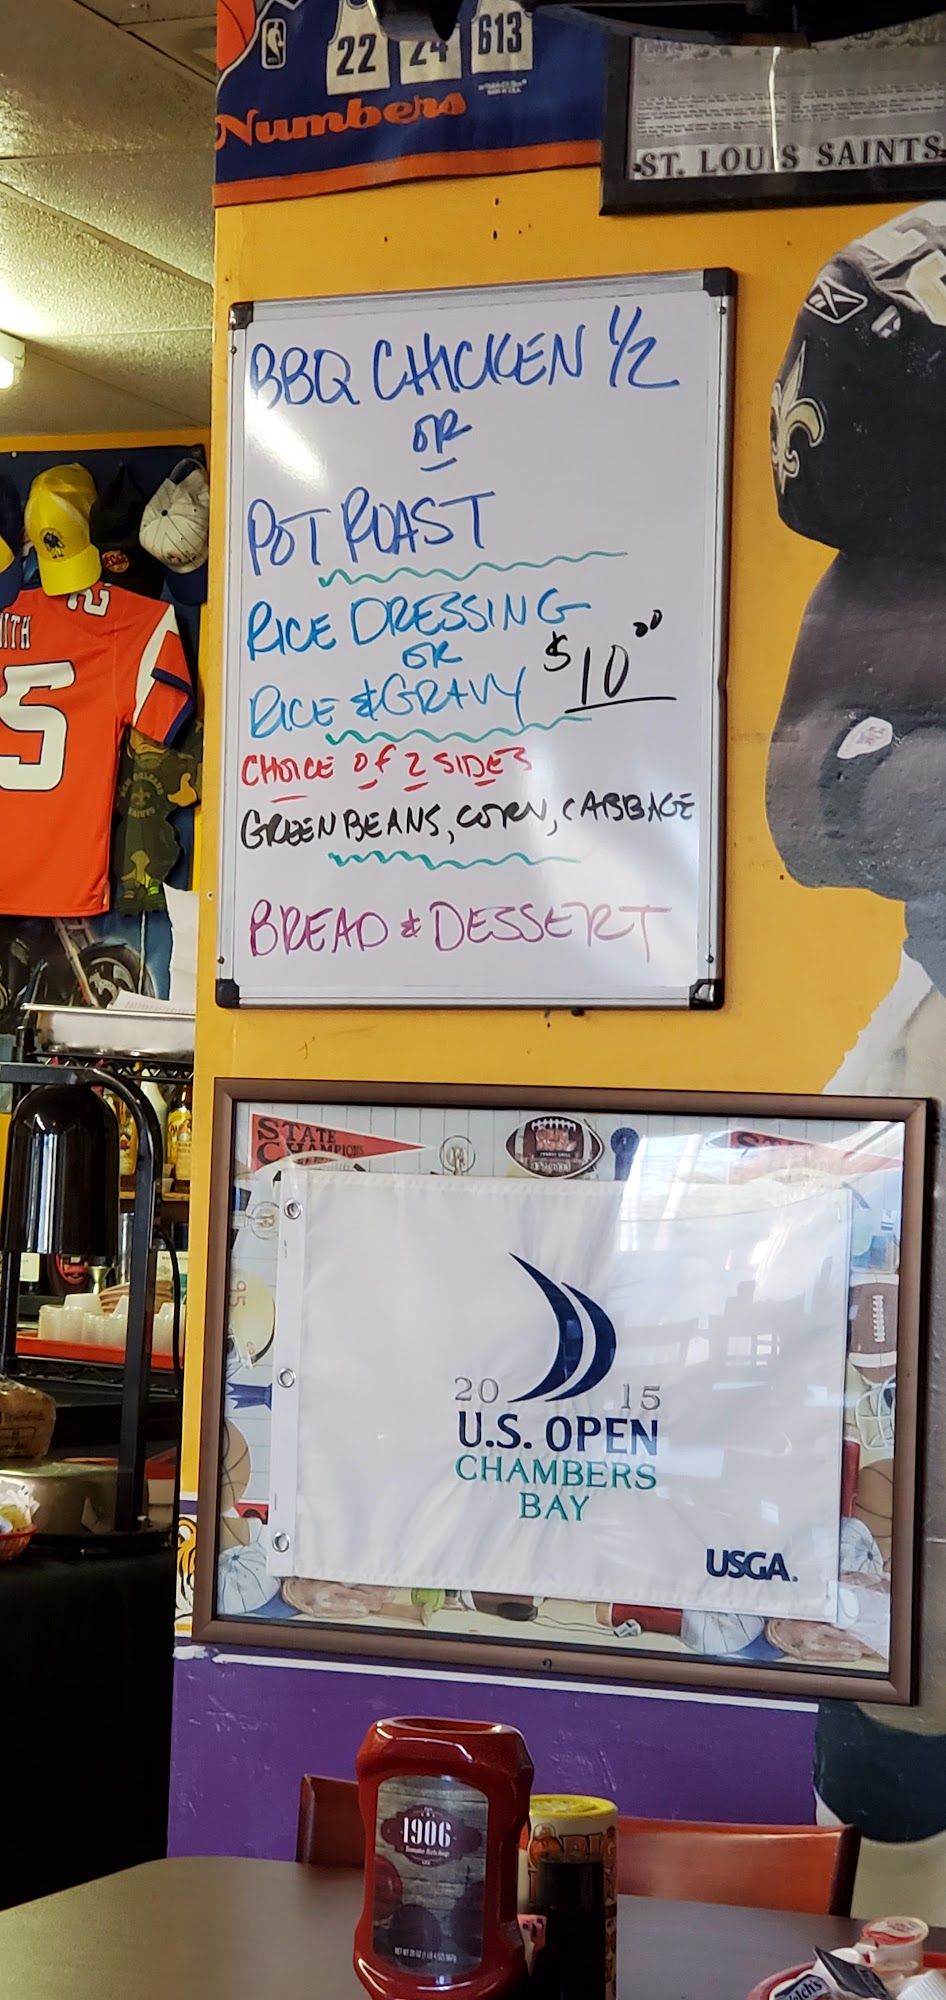 22 24 613
Numbers
ST. LOUIS SAINTS
BBQ CHICKEN 1/2
OR
POT ROAST
RICE DRESSING
OR
$10.00
RICE & GRAVY
CHOICE OF 2 SIDES
GREEN BEANS, CORN, CABBAGE
BREAD & DESSERT
ITH
25
STATE
CHAMPIONS
95
20 15
U.S. OPEN
CHAMBERS
BAY
USGA.
1906
Tomato Ketchup
Welch's